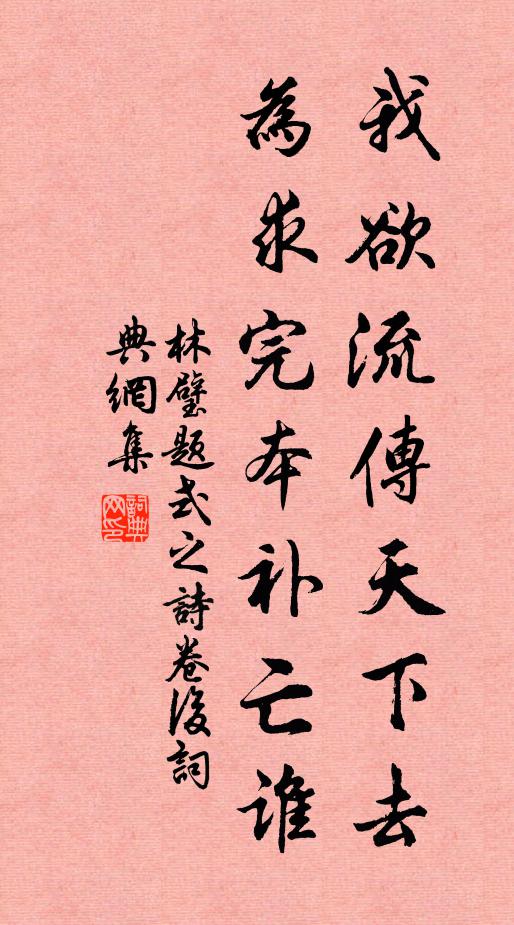 我欲流傳天下去
為求完本补亡谁
林璧題式之詩卷後詞
典網集
詞典網印